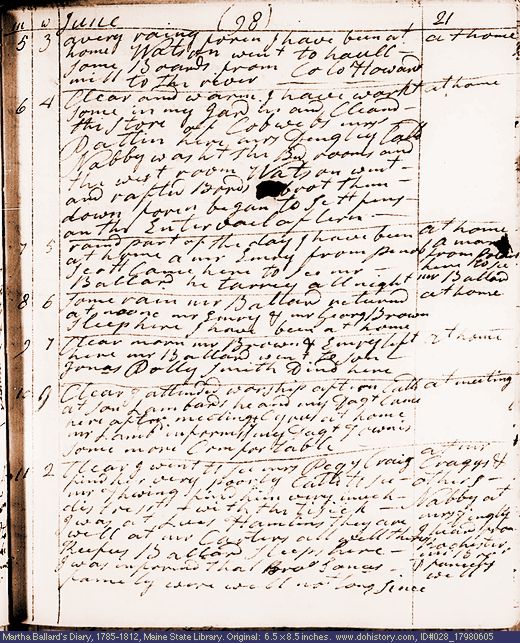 m w June (98) 21
5 3 a very raing foren I have been at at home
home Watson went to haull
some Boards from Colo Howard
mill to the river
6 4 Clear and warm I have workt at home
some in my gardins and Cleand
the store of Cobwebs mrs
Pattin here mrs Dengley Calld
Nabby washt the Bed rooms and
the west room Watson went
and rafted Bords brot them
down foren began to sett fens
on the Enterveil aftern
7 5 raind part of the day I have been at home
at home a mr Emery from penob a mr
Scott Came here to see mr from
Ballard he tarried all night here to se
mr Ballard
8 6 some rain mr Ballard returnd at home
at noone mr Emery & mr Georg Brown
sleep here I have been at home
9 7 Clear morn mr Brown & Emery left at home
here mr Ballard went to
Jonas Polly Smith Dind here
10 g Clear I attended worship aftern Calld at meeting
at son Lambards he and my Dagt Came
here after meeting Cyrus is at home
mr Lamb informs my Dagt Town is
some more Comfortable
11 2 Clear I went to see mrs Pegy Craig at mr
find her very poorly Calld to see Craggs &
mr Thwing find him very much others
distresst with the Tisick Nabby at
I was at Lues Hamlins they are mrs Dingly
well at mr Carters all well there
Rufus Ballard sleeps here
I was informd that Bror Jonas
famely were well not long since well